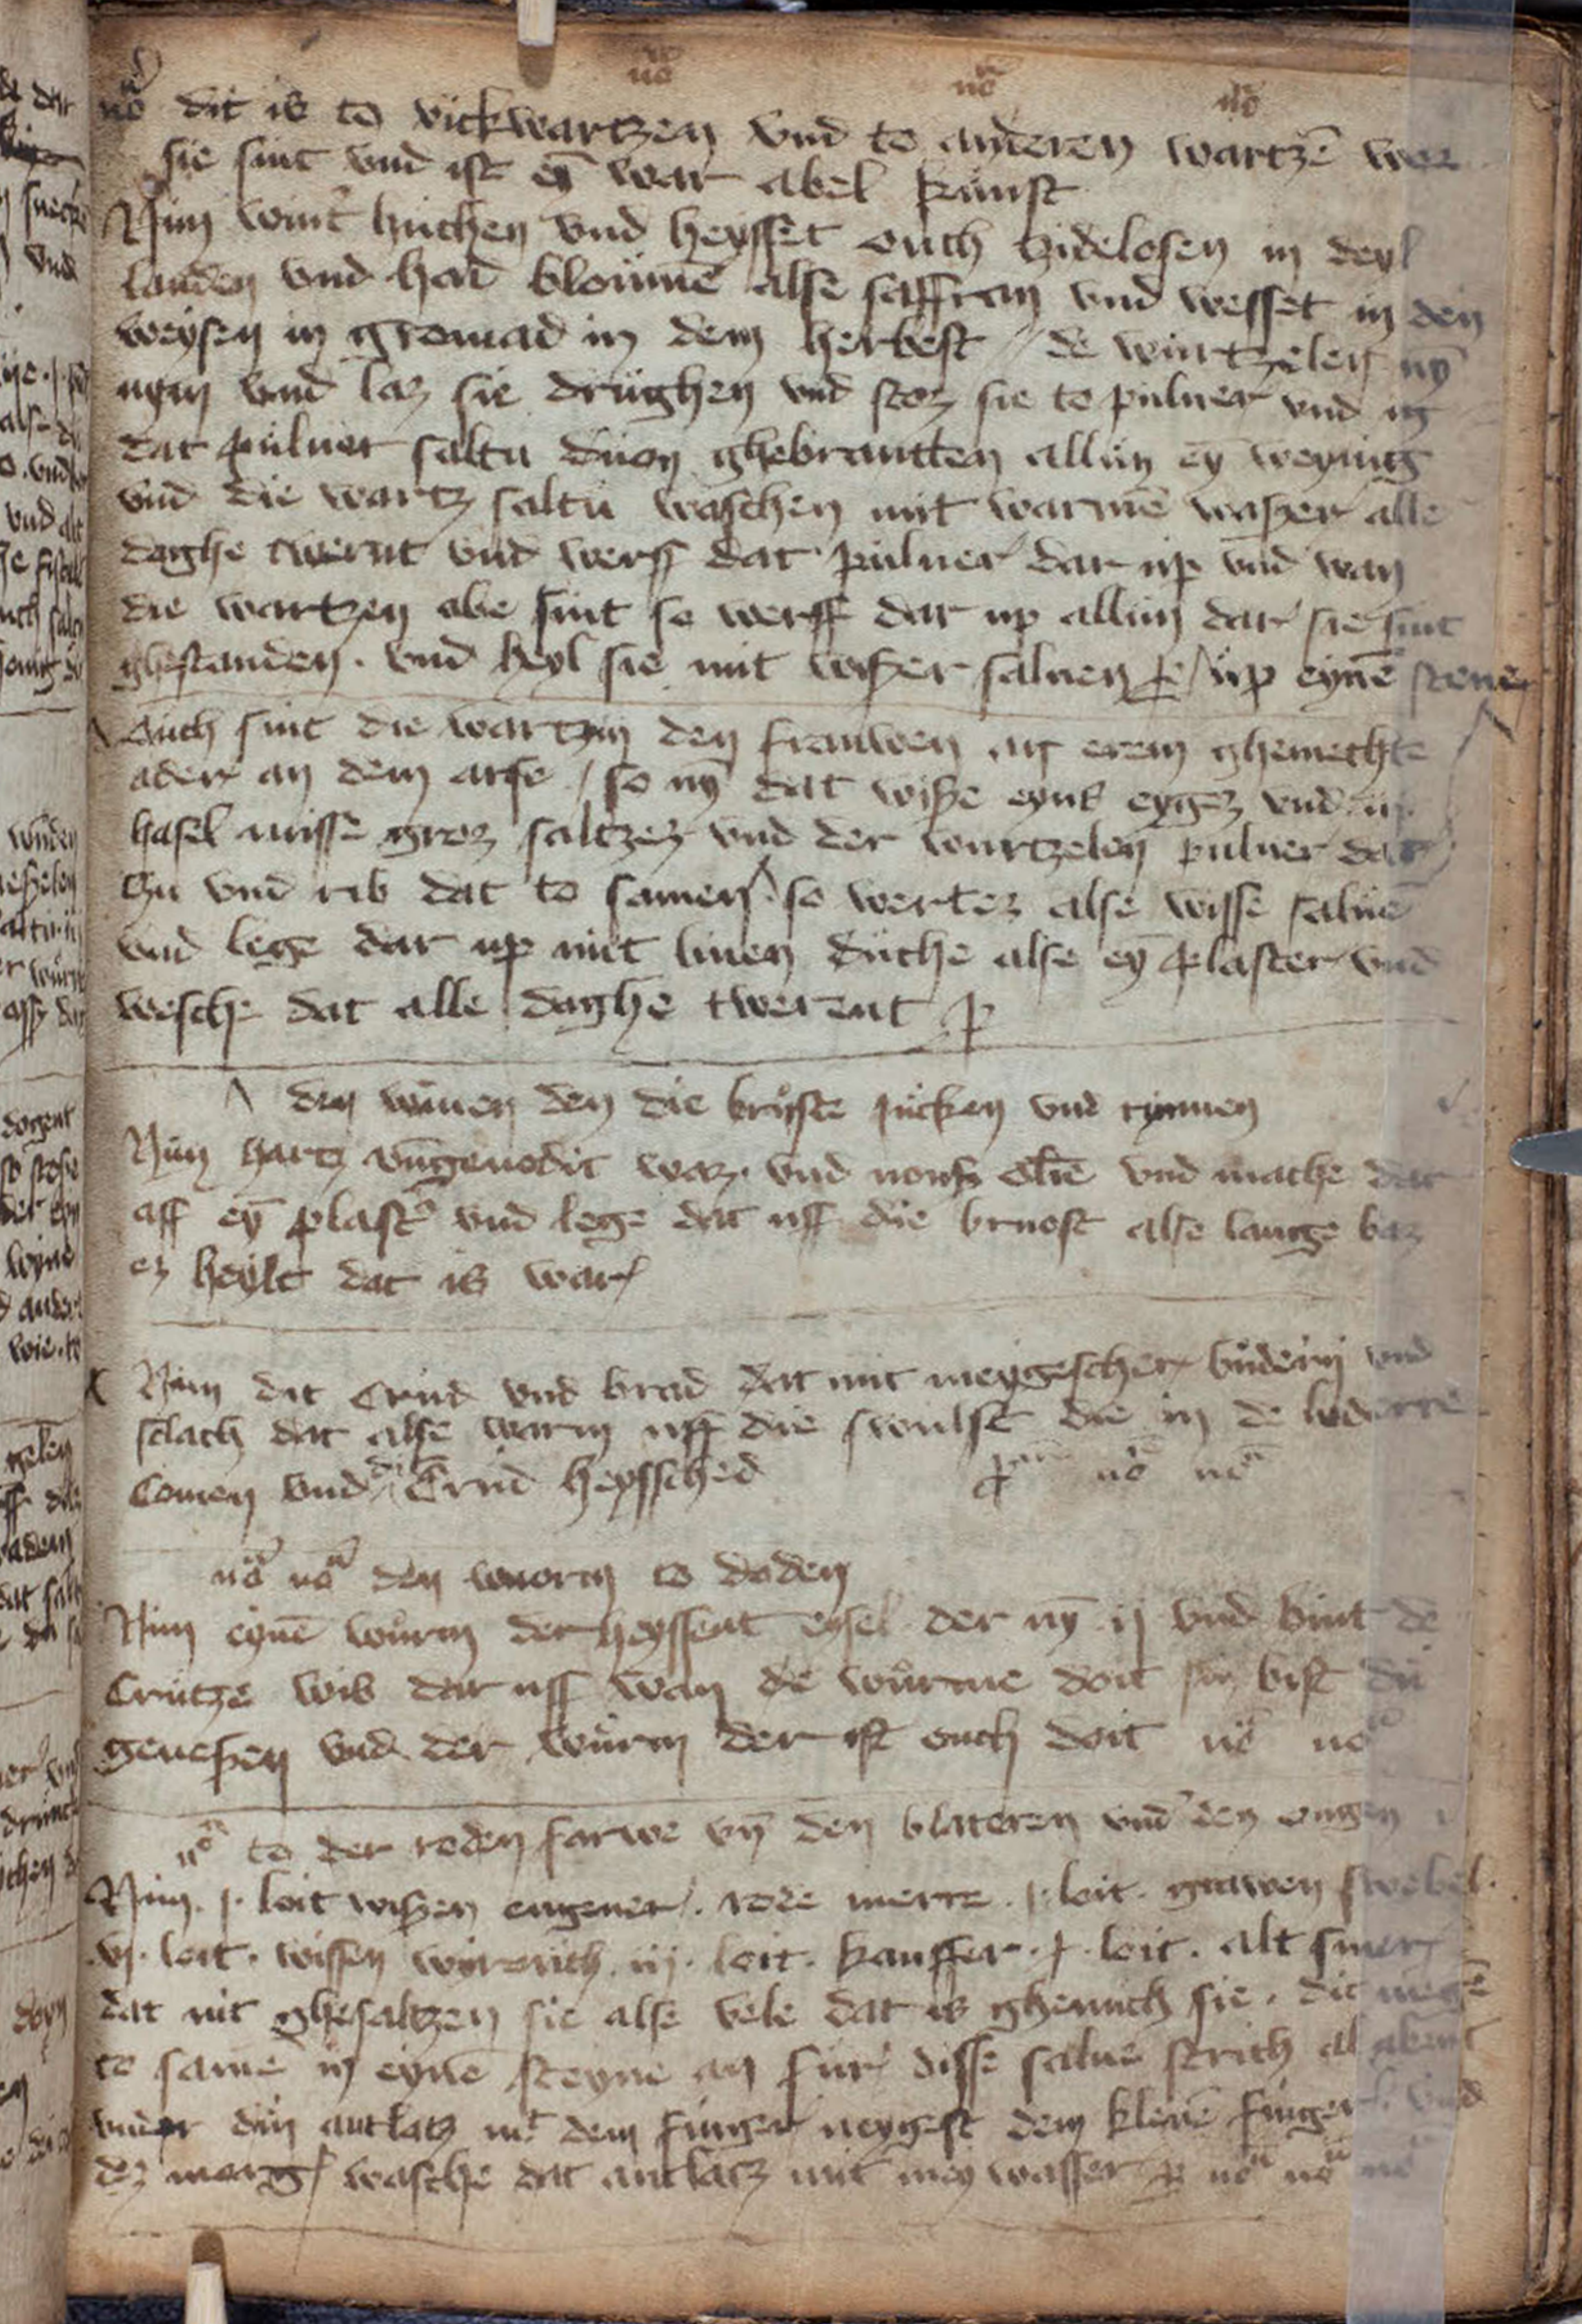 nō nō nō
nō dit is to vickwartzen vnd to anderen wartzē wor
sie sint vnd ist eȳ war abel kunst
Nim wint̉ huchen vnd heysset ouch tzidelosen in deyl
landen vnd had bloumē alse saffran vnd wesset in den
weysen in gromad in dem herbest / de wurtzelen nȳ
vnd laz sie drüghen vnd stoz sie to puluer vnd in
dat puluer saltu duon ghebrantten allun eȳ weynig
vnd die wartz saltu waschen mit warmē waszer alle
daghe twernt vnd werff dat puluer dar up vnd wan
die wartzen abe sint so werff dar up allun dar sie sint
ghestanden . vnd heyl sie mit wiszer saluen / up eynē stene
Ouch sint die wartzen den frauwen an erem ghemechte
ader an dem arse / so nȳ dat wisze eyns eygez vnd
hasel nusse groz saltzez vnd der wurtzelen puluer dar
zu vnd rib dat to samen so wertez alse wisse saluē
vnd lege dar up mit linen duche alse eȳ plaster vnd
wesche dat alle daghe twerent
den wiuen den die bruste jucken vnd rynnen
Nim hartz vngenodit waz . vnd olie vnd mache dar
aff eȳ plast̉ vnd lege dat uff die bruost alse lange baz
ez heylt dat is war
Nim dit crud vnd brad dat mit meygescher buderin vnd
slach dat alse warm uff die swulst die in de
comen vnd dit crud heyssched nō nō
nō nō den wuorm to doden
Nim eynē wurm der heyssent eysel der nȳ ij vnd bint de
crutze wis dar uff wan de wurme doit sin bist du
geneszen vnd der wurm der ist ouch doit nō nō
nō to der roden farwe vn̄ den blateren vnd den ougen
Nim . j . loit wiszen engeuer . rode merre . j . loit . grawen swebel .
vj . loit . wissen wyrouch iij . loit . kanffer . j . loit . alt smer
dat nit ghesaltzen sie alse vele dat is ghenuch sie . dit
to samē in eynē steyne an fur disse salue strich al abent
vnder din antlatz mit dem finger neygest dem klenē finger vnd
dez morg̉ wasche dat antlatz mit mey wasser nō nō nō